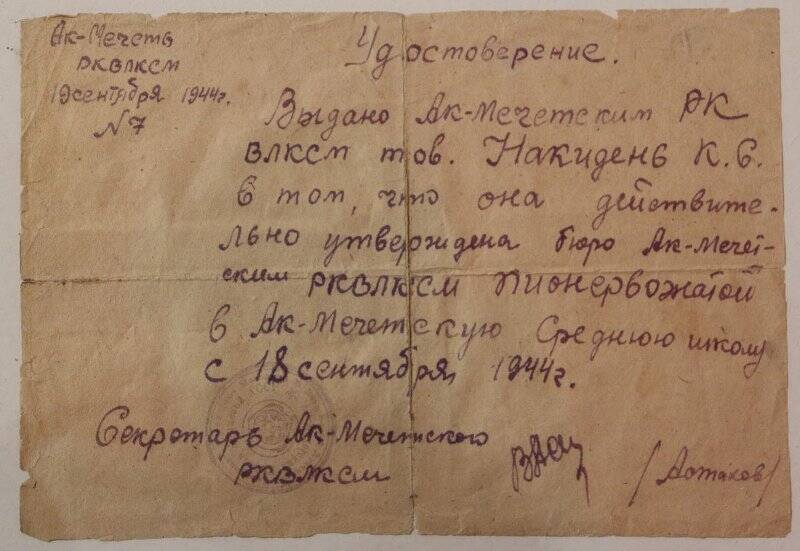 Ак-Мечеть
РКВЛКСМ
19 сентября 1944 г.
N 7
Удостоверение.
Выдано Ак-Мечетским РК
ВЛКСМ тов. Накидень К. С.
в том, что она действите-
льно утверждена бюро Ак-Мечет-
ским РКВЛКСМ пионервожатой
в Ак-Мечетскую Среднюю школу
с 18 сентября 1944 г.
Секретарь Ак-Мечетского
РКВЛКСМ